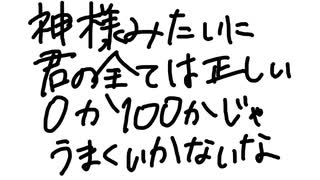 神様みたいに
君の全ては正しい
0か100かじゃ
うまくいかないな